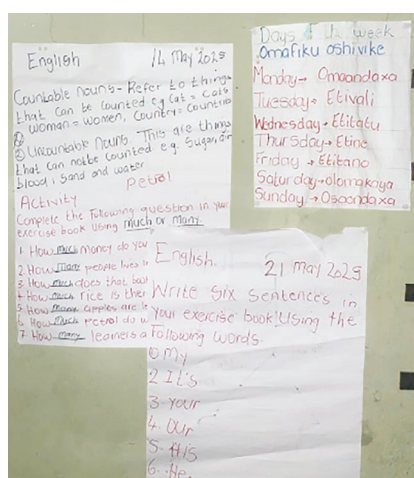 English 14 May 2025
Countable nouns - Refer to things
that can be counted eg Cat = Cats
Woman = Women, Country = Countries
② Uncountable Nouns This are things
that can not be counted e.g. Sugar, air
blood, sand and water.
Petrol
Activity
Complete the following question in your
exercise book using much or many.
1. How much money do you
2. How many people lives in
3. How much does that book
4. How much rice is ther
5. How many apples are
6. How much petrol do
7. How many learners a
Days of the week
Omafiku oshivike
Monday - Omaandaxa
Tuesday - Etivali
Wednesday - Etitatu
Thursday - Etine
Friday - Etitano
Saturday - olomakaya
Sunday - Osoondaxa
English.
21 May 2025
Write six sentences in
your exercise book using the
following words.
① My
2 It's
3 Your
4 Our
5. His
6. He